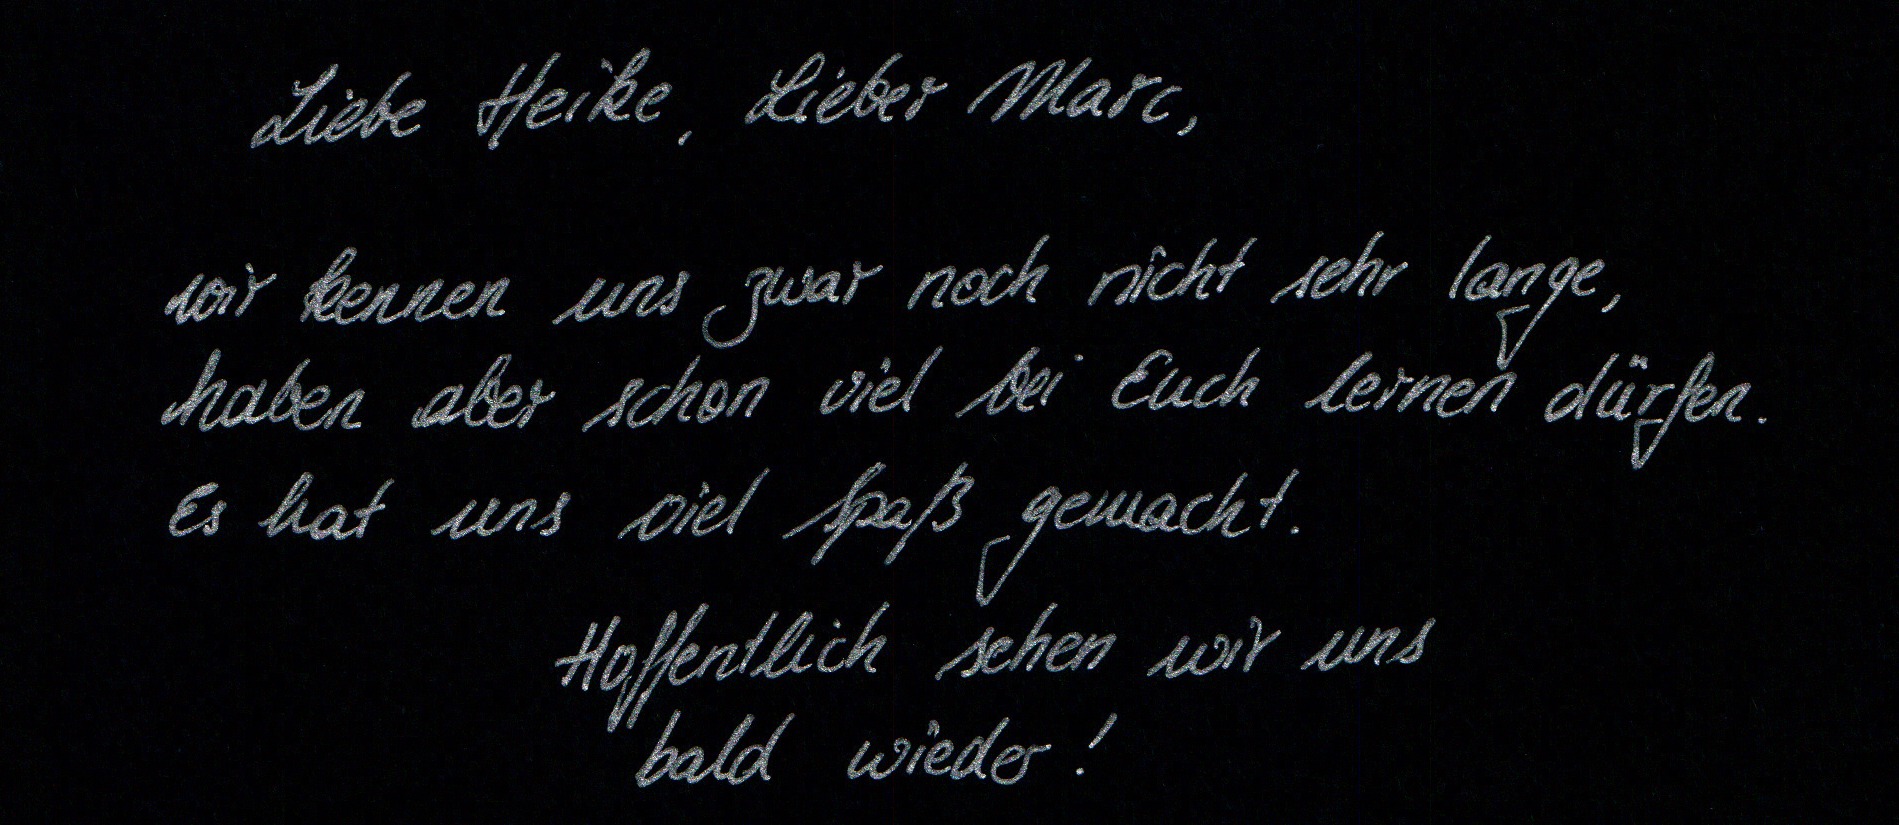 Liebe Heike, Lieber Marc,
wir kennen uns zwar noch nicht sehr lange,
haben aber schon viel bei Euch lernen dürfen.
Es hat uns viel Spaß gemacht.
Hoffentlich sehen wir uns
bald wieder!